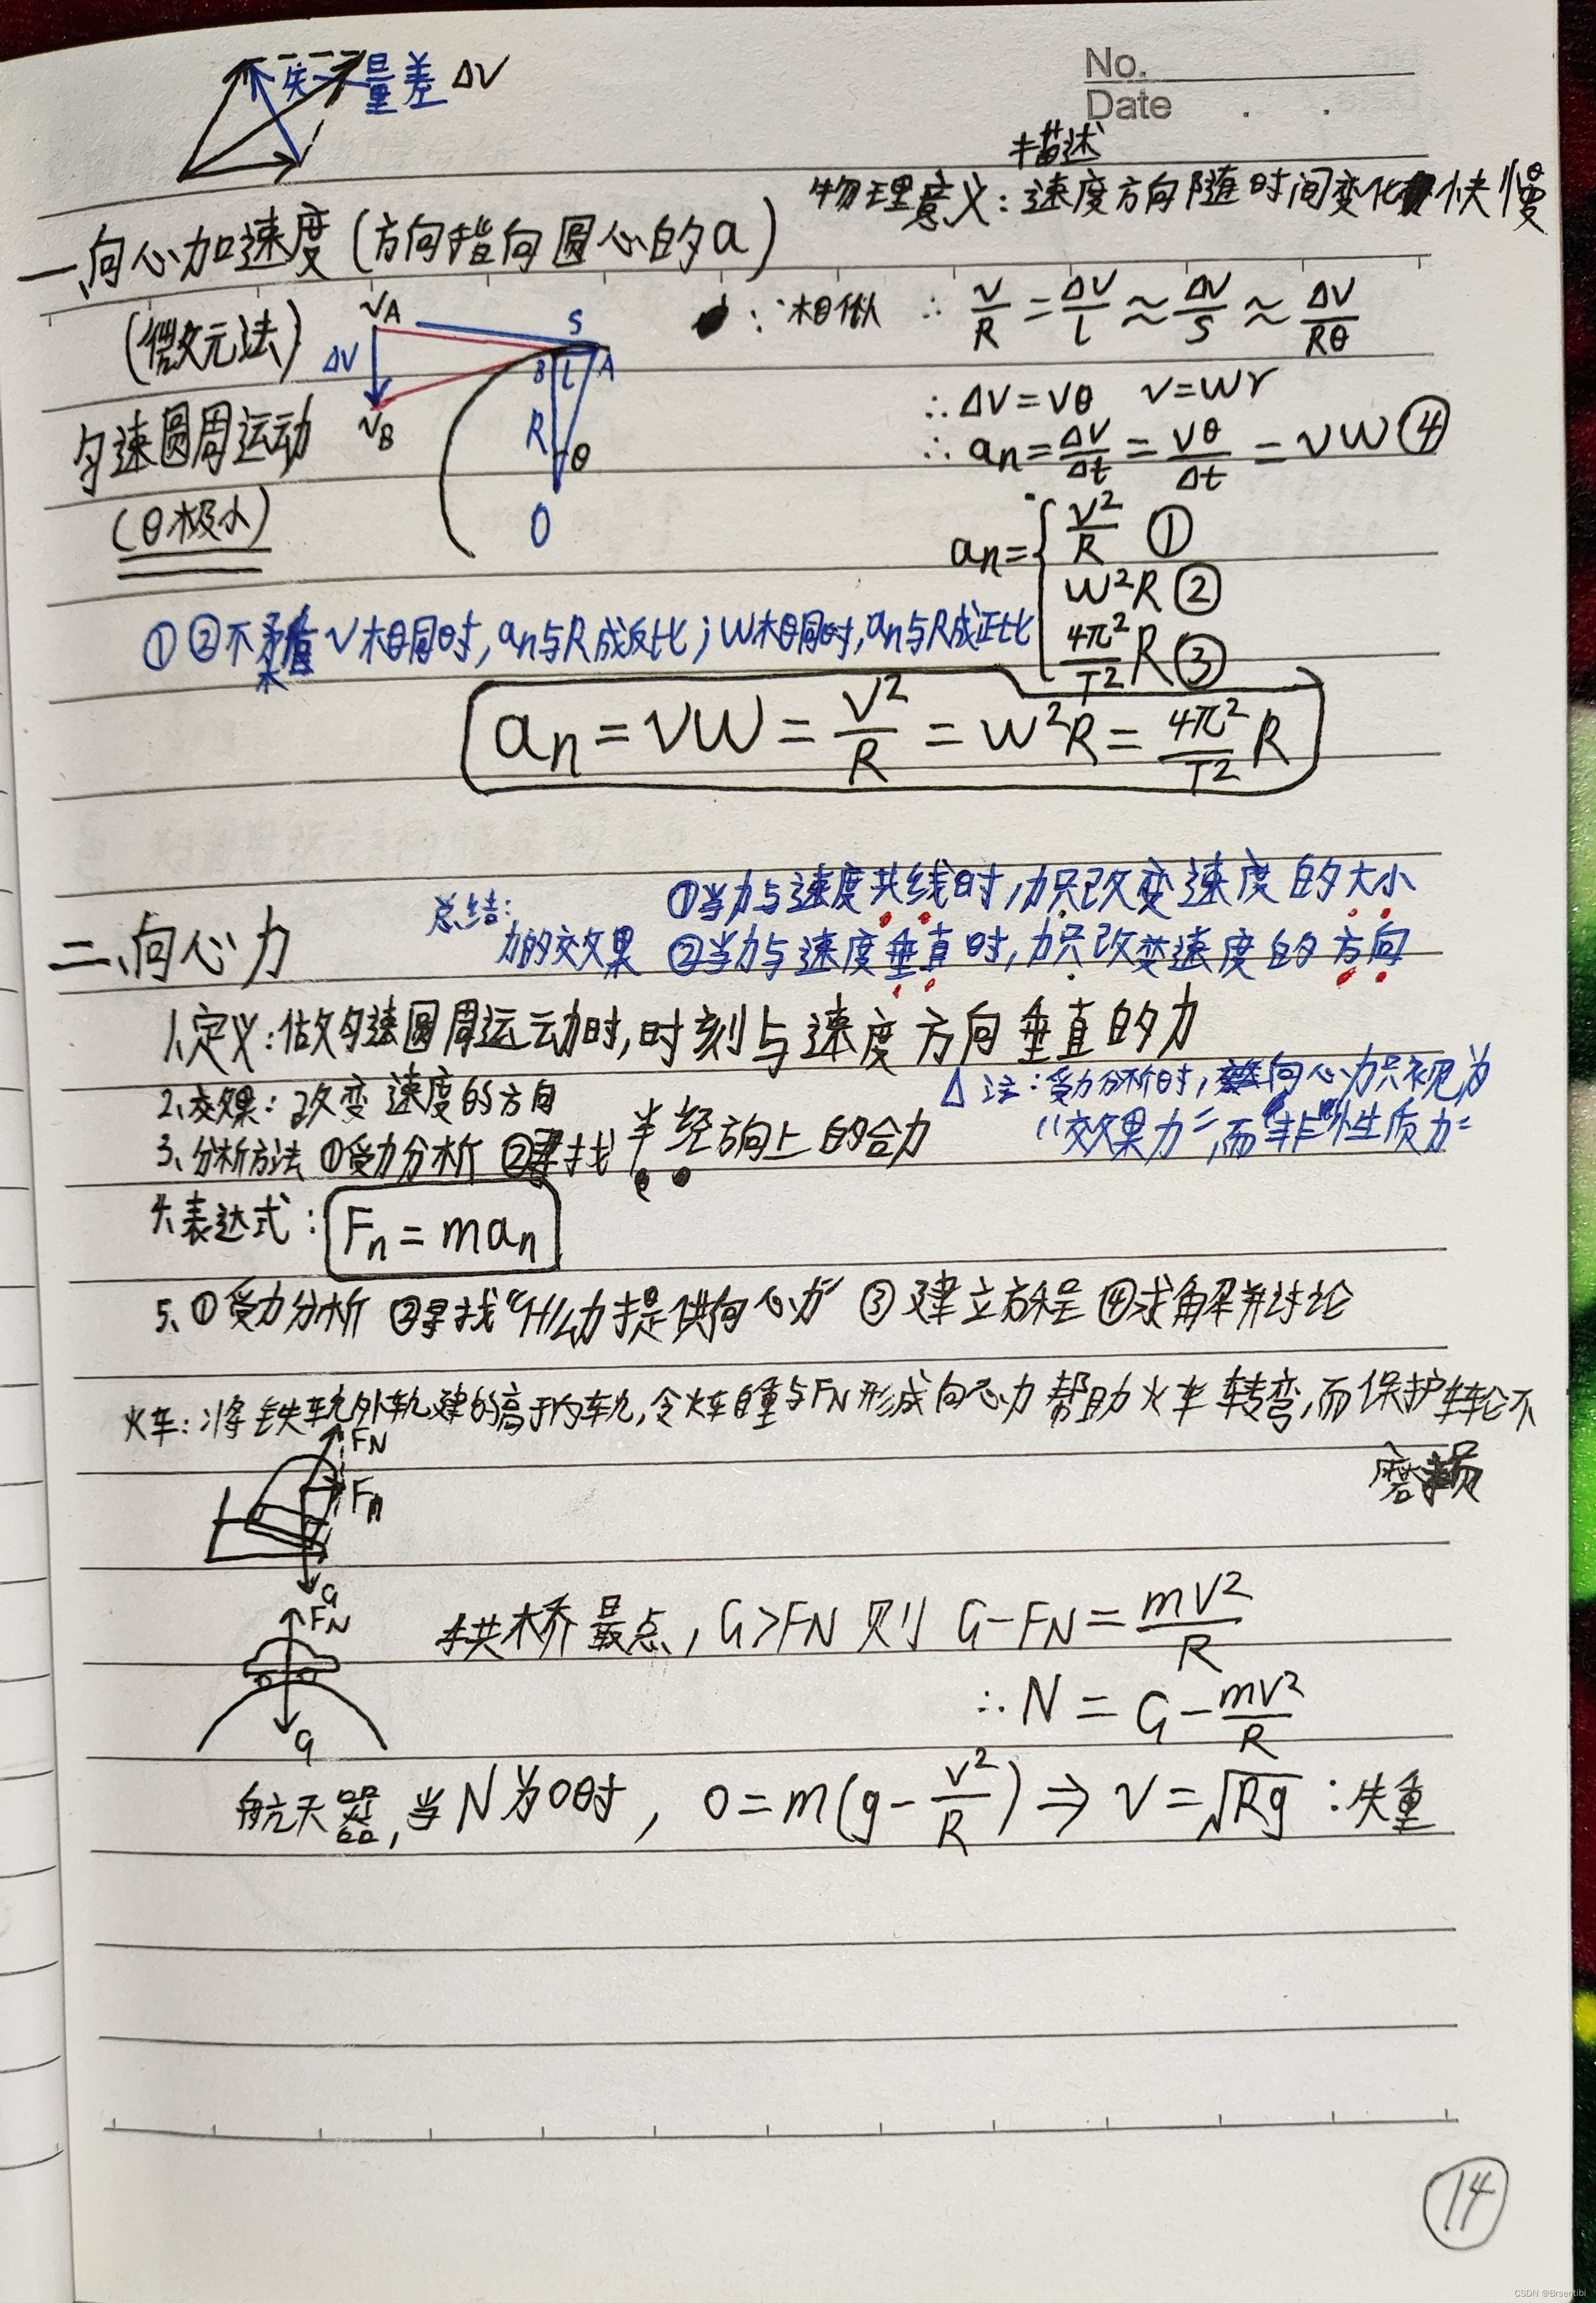 矢量差 ΔV
No.
Date . .
描述
物理意义:速度方向随时间变化快慢
一、向心加速度(方向指向圆心的a)
(微元法)
匀速圆周运动
(θ极小)
VA
ΔV
VB
S
B L A
R
θ
O
∵相似 ∴ V/R = ΔV/L ≈ ΔV/S ≈ ΔV/Rθ
∴ΔV=Vθ V=Wr
∴an=ΔV/Δt=Vθ/Δt=VW④
an={V²/R ①
W²R ②
4π²/T² R ③
①②不矛盾 V相同时,an与R成反比;W相同时,an与R成正比
an=VW=V²/R=W²R=4π²/T² R
二、向心力
总结:
力的效果 ①当力与速度共线时,力只改变速度的大小
②当力与速度垂直时,力只改变速度的方向
1、定义:做匀速圆周运动时,时刻与速度方向垂直的力
2、效果:改变速度的方向
△注:受力分析时,向心力只视为
“效果力”,而非“性质力”
3、分析方法 ①受力分析 ②寻找半经方向上的合力
4、表达式:Fn=man
5、①受力分析 ②寻找“什么力提供向心力” ③建立方程 ④求解并讨论
火车:将铁轨外轨建的高于内轨,令火车自重与FN形成向心力帮助火车转弯,而保护车轮不
磨损
FN
Fn
G
FN
G
拱桥最点,G>FN 则 G-FN=mV²/R
∴N=G-mV²/R
航天器,当N为0时,0=m(g-V²/R)⇒V=√Rg:失重
14
CSDN @Brsentibi